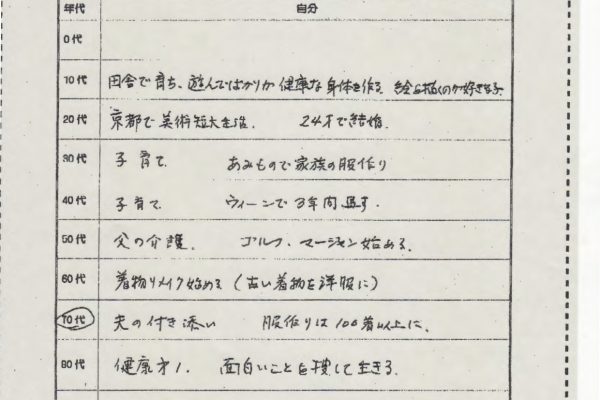 年代 自分
0代
10代 田舎で育ち、遊んでばかりか健康な身体を作る 絵を描くのが好きな子
20代 京都で美術短大生活. 24才で結婚.
30代 子育て あみもので家族の服作り
40代 子育て ウィーンで3年間過す.
50代 父の介護. ゴルフ、マージャン始める.
60代 着物リメイク始める (古い着物を洋服に)
70代 夫の付き添い 服作りは100着以上に.
80代 健康オ1. 面白いことを捜して生きる.